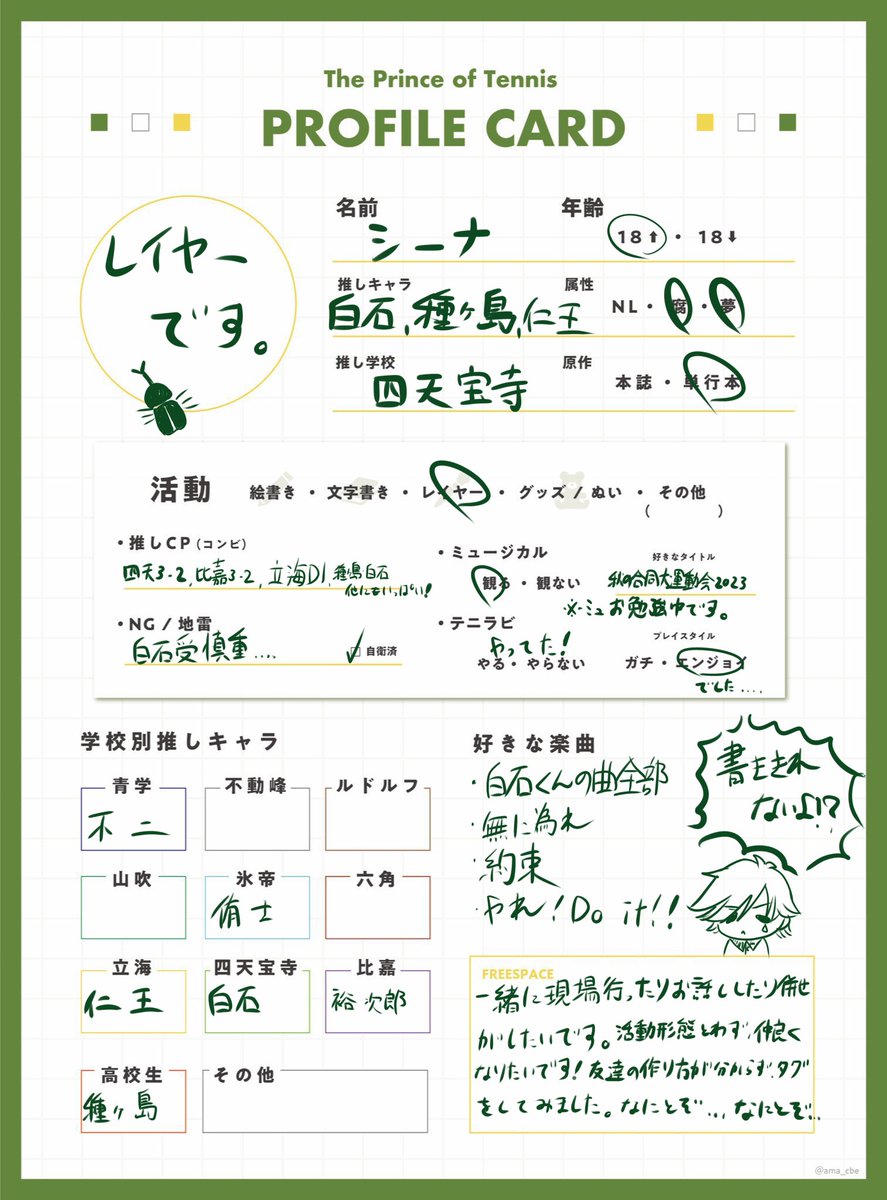 The Prince of Tennis
PROFILE CARD
レイヤー
です。
名前
シーナ
年齢
18⬆ ・ 18⬇
推しキャラ
白石,種ヶ島,仁王
属性
NL ・ 腐 ・ 夢
推し学校
四天宝寺
原作
本誌 ・ 単行本
活動
絵書き ・ 文字書き ・ レイヤー ・ グッズ / ぬい ・ その他
( )
・推しCP(コンビ)
四天3-2,比嘉3-2,立海D1,種島白石
他にもいっぱい!
・NG / 地雷
白石受慎重....
自衛済
・ミュージカル
観る ・ 観ない
好きなタイトル
秋の合同大運動会2023
※ミュお勉強中です。
・テニラビ
やってた!
やる ・ やらない
プレイスタイル
ガチ ・ エンジョイ
でした....
学校別推しキャラ
青学
不二
不動峰
ルドルフ
山吹
氷帝
侑士
六角
立海
仁王
四天宝寺
白石
比嘉
裕次郎
高校生
種ヶ島
その他
好きな楽曲
・白石くんの曲全部
・無に為れ
・約束
・やれ!Do it!!
書ききれ
ないよ!?
FREESPACE
一緒に現場行ったりお話ししたり併せ
かしたいです。活動形態とわず、仲良く
なりたいです!友達の作り方が分からず、タグ
をしてみました。なにとぞ...なにとぞ...
@ama_cbe